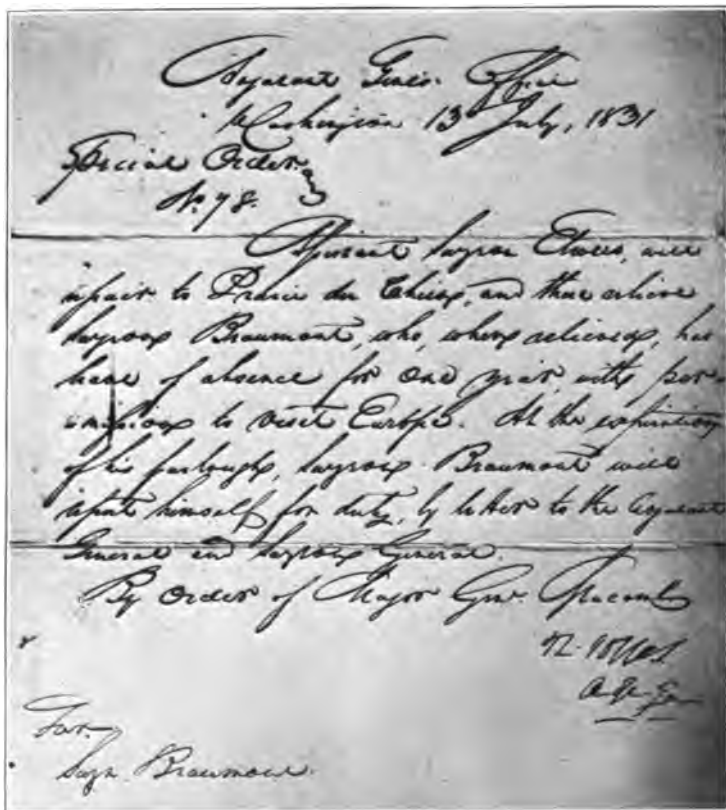 Adjutant Genls. Office
Washington 13 July, 1831
Special Order
No. 78.
Assistant Surgeon Elwes, will
repair to Prairie du Chien, and there relieve
Surgeon Beaumont, who, when relieved, has
leave of absence for one year, with per-
mission to visit Europe. At the expiration
of his furlough, Surgeon Beaumont will
report himself for duty, by letter to the Adjutant
General and Surgeon General.
By Order of Major Genl. Macomb
R. Jones
Adj. Gen
For
Surgn. Beaumont.